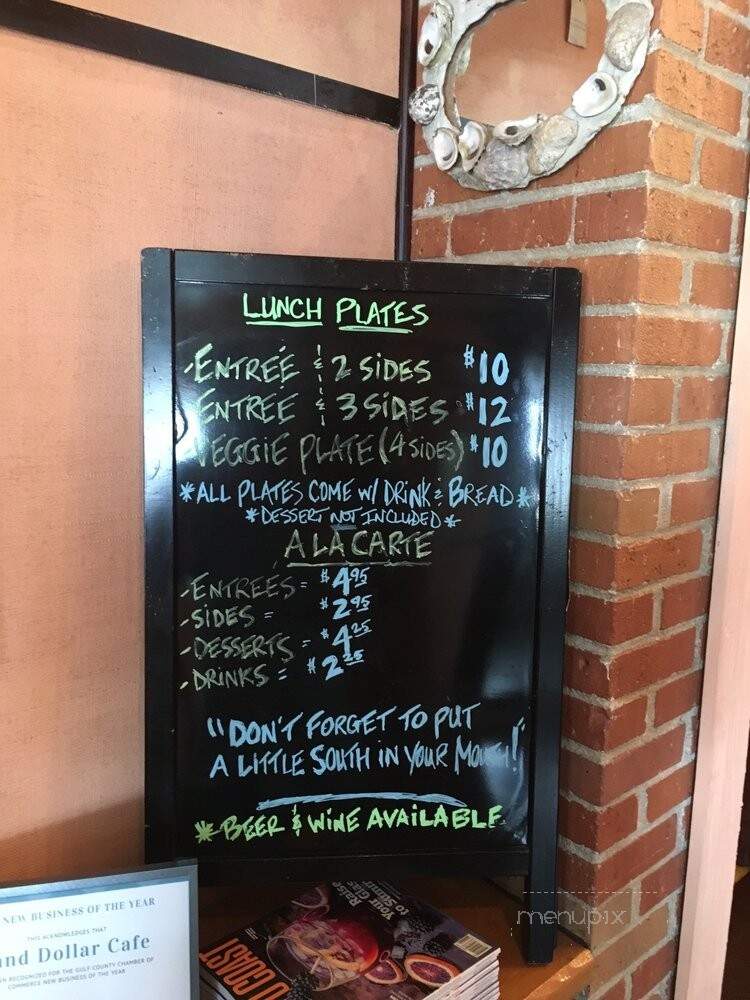 LUNCH PLATES
-ENTREÉ & 2 SIDES $10
ENTREE & 3 SIDES $12
VEGGIE PLATE (4 SIDES) $10
*ALL PLATES COME W/ DRINK & BREAD*
*DESSERT NOT INCLUDED*
A LA CARTE
-ENTREÉS = $4.95
-SIDES = $2.95
-DESSERTS = $4.25
-DRINKS = $2.25
"DON'T FORGET TO PUT
A LITTLE SOUTH IN YOUR MOUTH!"
*BEER & WINE AVAILABLE
NEW BUSINESS OF THE YEAR
THIS ACKNOWLEDGES THAT
nd Dollar Cafe
EN RECOGNIZED FOR THE GULF COUNTY CHAMBER OF
COMMERCE NEW BUSINESS OF THE YEAR
Raise
Your Glass
to
COAST
menupix